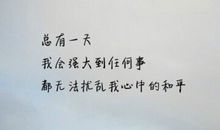 总有一天
我会强大到任何事
都无法扰乱我心中的和平